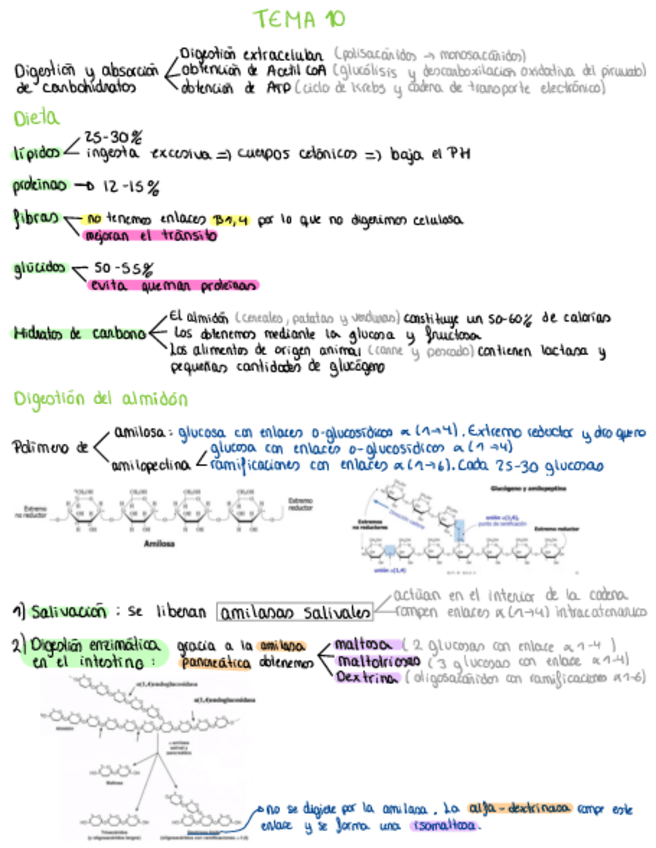 TEMA 10
Digestión y absorción de carbohidratos
Digestión extracelular (polisacáridos → monosacáridos)
obtención de Acetil CoA (glucólisis y descarboxilación oxidativa del piruvato)
obtención de ATP (ciclo de Krebs y cadena de transporte electrónico)
Dieta
lípidos
25-30%
ingesta excesiva => cuerpos cetónicos => baja el PH
proteínas → 12-15%
fibras
no tenemos enlaces B1,4 por lo que no digerimos celulosa
mejoran el tránsito
glúcidos
50-55%
evita quemar proteínas
Hidratos de carbono
El almidón (cereales, patatas y verduras) constituye un 50-60% de calorías
Los obtenemos mediante la glucosa y fructosa
Los alimentos de origen animal (carne y pescado) contienen lactasa y
pequeñas cantidades de glucógeno
Digestión del almidón
Polímero de
amilosa: glucosa con enlaces o-glucosídicos α(1→4). Extremo reductor y otro que no
amilopectina
glucosa con enlaces o-glucosídicos α(1→4)
ramificaciones con enlaces α(1→6). Cada 25-30 glucosas
Extremo no reductor
Extremo reductor
Amilosa
Glucógeno y amilopeptina
unión α(1,6), punto de ramificación
Extremos no reductores
Extremo reductor
unión α(1,4)
1) Salivación: se liberan amilasas salivales
actúan en el interior de la cadena
rompen enlaces α(1→4) intracatenarios
2) Digestión enzimática en el intestino:
gracia a la amilasa pancreática obtenemos
maltosa (2 glucosas con enlace α1-4)
maltotriosas (3 glucosas con enlace α1-4)
Dextrina (oligosacáridos con ramificaciones α1-6)
α(1,4)endoglucosidasa
α(1,4)endoglucosidasa
Almidón
α-amilasa salival y pancreática
Maltosa
Trisacáridos
(y oligosacáridos largos)
(oligosacáridos con ramificaciones α-1,6)
no se digiere por la amilasa. La alfa-dextrinasa rompe este
enlace y se forma una isomaltosa.